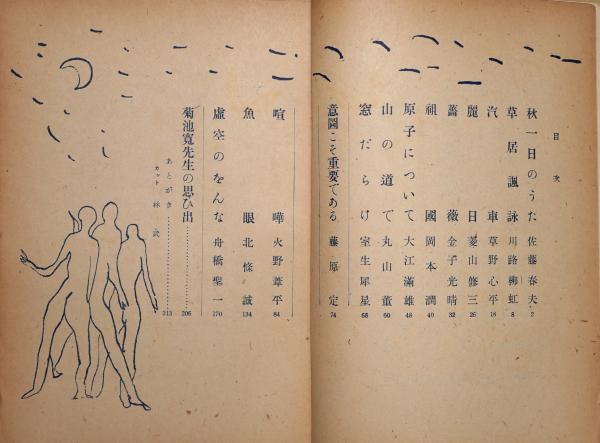 目次
秋一日のうた 佐藤春夫 2
草居諷詠 川路柳虹 8
汽車 草野心平 18
麗日 菱山修三 26
薔薇 金子光晴 32
祖國 岡本潤 40
原子について 大江滿雄 48
山の道で 丸山薫 60
窓だらけ 室生犀星 68
意圖こそ重要である 藤原定 74
喧嘩 火野葦平 84
魚眼 北條誠 134
虚空のをんな 舟橋聖一 170
菊池寛先生の思ひ出 206
あとがき 213
カット 林武